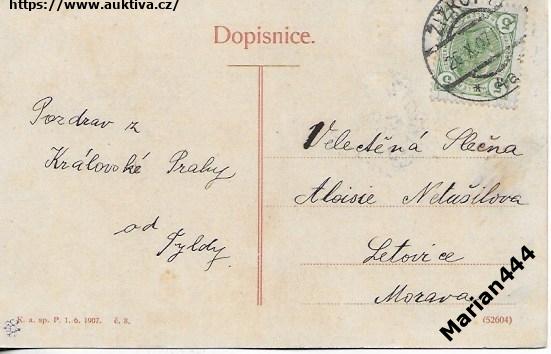 https://www.auktiva.cz/
Dopisnice.
5
5
Pozdrav z
Královské Prahy
od
Tyldy.
Velectěná Slečna
Aloisie Netušilova
Letovice
Morava
K. a. sp. P. 1. 6. 1907. č. 8.
(52604)
Marian444